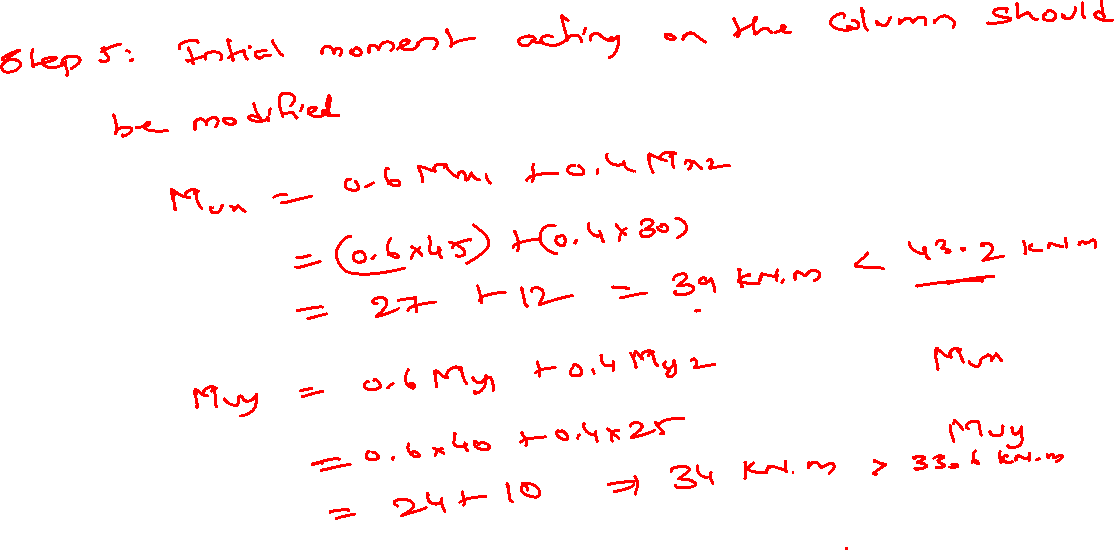 Step 5: Initial moment acting on the column should
be modified
Mux = 0.6 Mx1 + 0.4 Mx2
= (0.6x45) + (0.4x30)
= 27 + 12 = 39 kN.m < 43.2 kNm
Muy = 0.6 My1 + 0.4 My2 Mux
= 0.6x40 + 0.4x25 Muy
= 24 + 10 ⇒ 34 kN.m > 33.6 kN.m